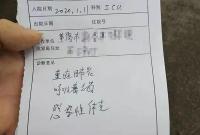 入院日期 2020.1.11 科 ICU
住院号
诊断
重症肺炎
呼吸衰竭
感染性休克